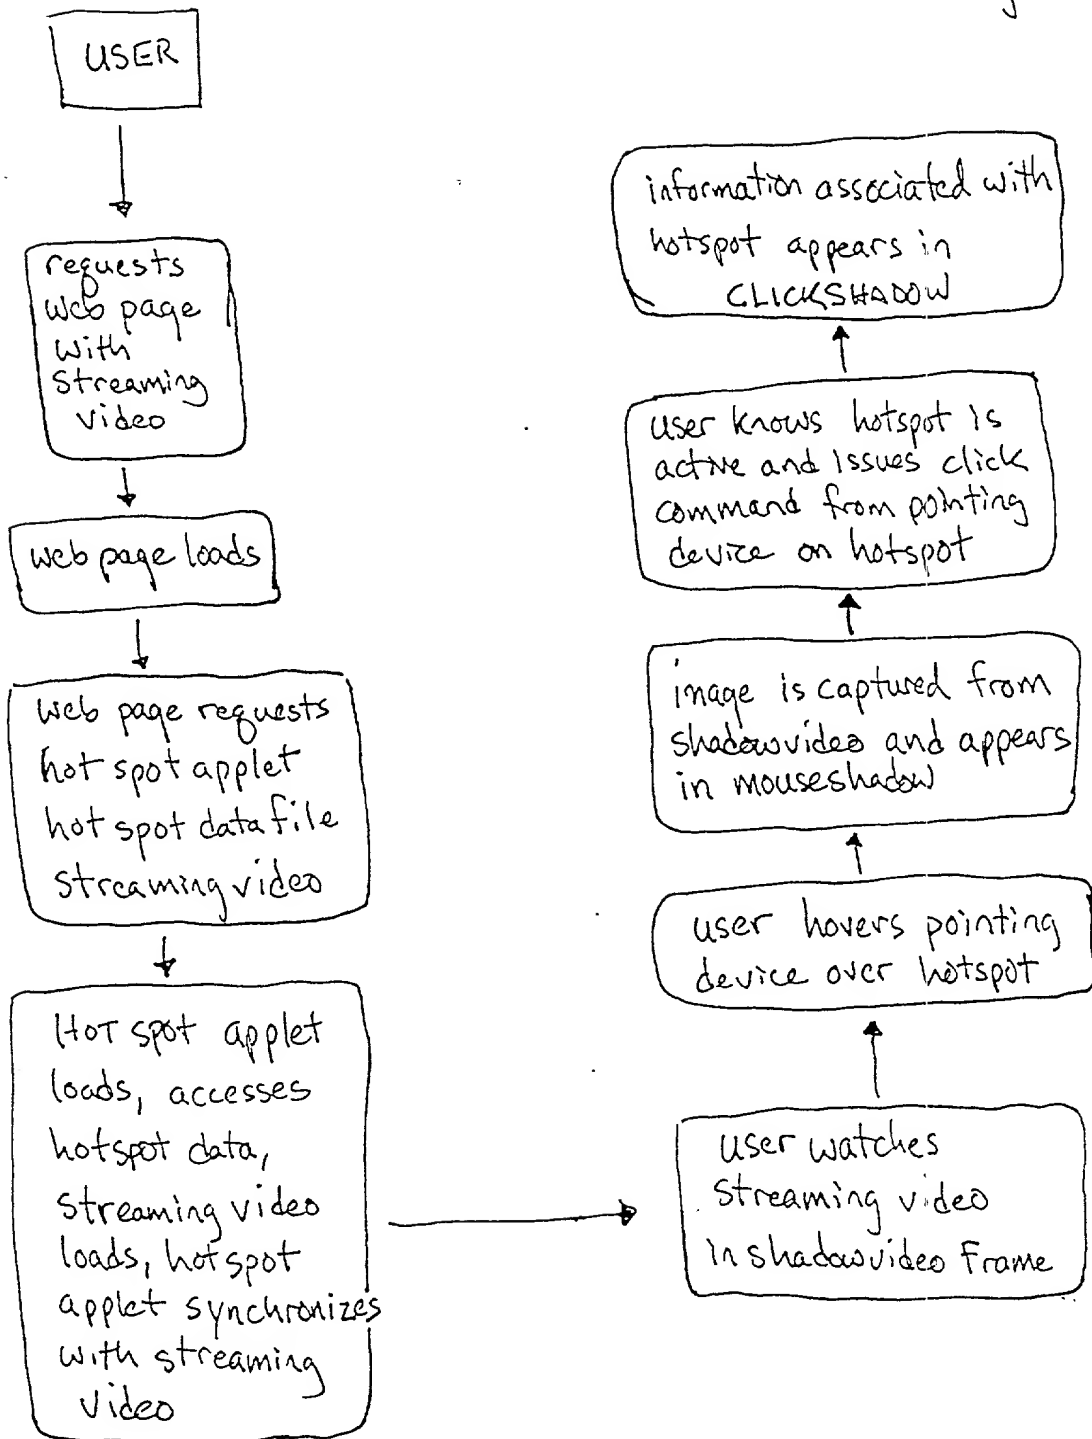 USER
requests
web page
with
streaming
video
web page loads
web page requests
hot spot applet
hot spot data file
streaming video
HOT spot applet
loads, accesses
hotspot data,
streaming video
loads, hotspot
applet synchronizes
with streaming
video
user watches
streaming video
in shadowvideo Frame
user hovers pointing
device over hotspot
image is captured from
shadowvideo and appears
in mouseshadow
user knows hotspot is
active and issues click
command from pointing
device on hotspot
information associated with
hotspot appears in
CLICKSHADOW